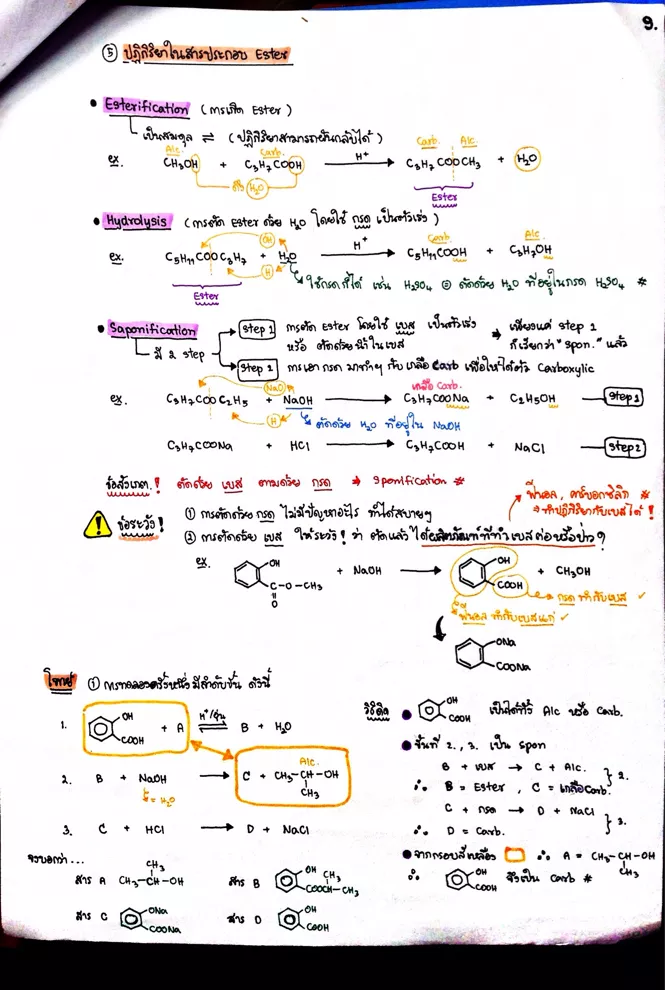 9.
⑤ ปฏิกิริยาในสารประกอบ Ester
• Esterification (การเกิด Ester)
เป็นสมดุล ⇌ (ปฏิกิริยาสามารถผันกลับได้)
Alc. Carb. Carb. Alc.
ex. CH₃OH + C₃H₇COOH —H⁺→ C₃H₇COOCH₃ + H₂O
ดึง H₂O
Ester
• Hydrolysis (การตัด Ester ด้วย H₂O โดยใช้ กรด เป็นตัวเร่ง)
OH Carb. Alc.
ex. C₅H₁₁COOC₃H₇ + H₂O —H⁺→ C₅H₁₁COOH + C₃H₇OH
H
Ester
ใช้กรดก็ได้ เช่น H₂SO₄ ตัดด้วย H₂O ที่อยู่ในกรด H₂SO₄ *
• Saponification
มี 2 step
step 1 การตัด Ester โดยใช้ เบส เป็นตัวเร่ง
หรือ ตัดด้วยน้ำในเบส
→ เพียงแค่ step 1
ก็เรียกว่า "spon." แล้ว
step 2 การเอา กรด มาทำๆ กับ เกลือ Carb เพื่อให้ได้ตัว Carboxylic
NaO เกลือ Carb.
ex. C₃H₇COOC₂H₅ + NaOH → C₃H₇COONa + C₂H₅OH step 1
H
ตัดด้วย H₂O ที่อยู่ใน NaOH
C₃H₇COONa + HCl → C₃H₇COOH + NaCl step 2
ข้อสังเกต! ตัดด้วย เบส ตามด้วย กรด → Sponification *
ฟีนอล, คาร์บอกซิลิก *
→ ทำปฏิกิริยากับเบสได้!
! ข้อระวัง!
① การตัดด้วย กรด ไม่มีปัญหาอะไร ทำได้สบายๆ
② การตัดด้วย เบส ให้ระวัง! ว่า ตัดแล้ว ได้ผลิตภัณฑ์ที่ทำเบสต่อหรือป่าว?
ex. OH C-O-CH₃ O + NaOH → OH COOH + CH₃OH
กรด ทำกับเบส ✓
ฟีนอล ทำกับเบสแก่ ✓
ONa
COONa
โจทย์ ① การทดลองครั้งหนึ่งมีลำดับขั้น ดังนี้
1. OH COOH + A ⇌ H⁺/อุ่น B + H₂O
Alc.
2. B + NaOH → C + CH₃-CH-OH
CH₃
= H₂O
3. C + HCl → D + NaCl
จงบอกว่า...
สาร A CH₃-CH-OH CH₃
สาร B OH COOCH-CH₃ CH₃
สาร C ONa COONa
สาร D OH COOH
วิธีคิด • OH COOH เป็นได้ทั้ง Alc หรือ Carb.
• ขั้นที่ 2., 3. เป็น spon
B + เบส → C + Alc.
∴ B = Ester, C = เกลือCarb. } 2.
C + กรด → D + NaCl
∴ D = Carb. } 3.
• จากกรอบสีเหลือง ∴ A = CH₃-CH-OH
CH₃
∴ OH COOH จึงเป็น Carb *